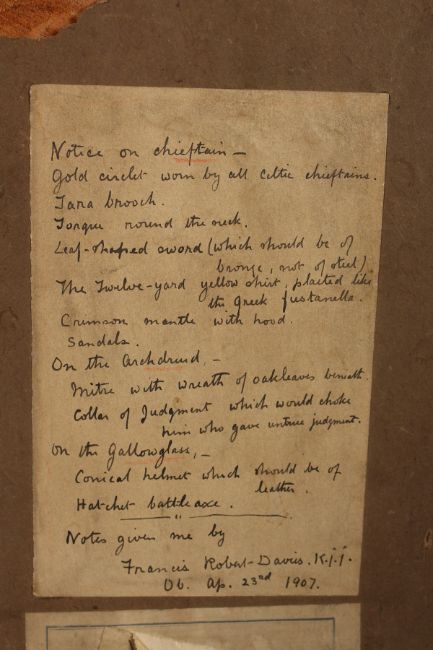 Notice on chieftain —
Gold circlet worn by all Celtic chieftains.
Tara brooch.
Torque round the neck.
Leaf-shaped sword (which should be of
bronze, not of steel)
The Twelve-yard yellow shirt, plaited like
the Greek fustanella.
Crimson mantle with hood.
Sandals.
On the Archdruid, —
Mitre with wreath of oakleaves beneath.
Collar of Judgment which would choke
him who gave untrue judgment.
On the Gallowglass, —
Conical helmet which should be of
leather.
Hatchet battleaxe.
Notes given me by
Francis Robert-Davies. K.J.J.
Ob. Ap. 23rd 1907.